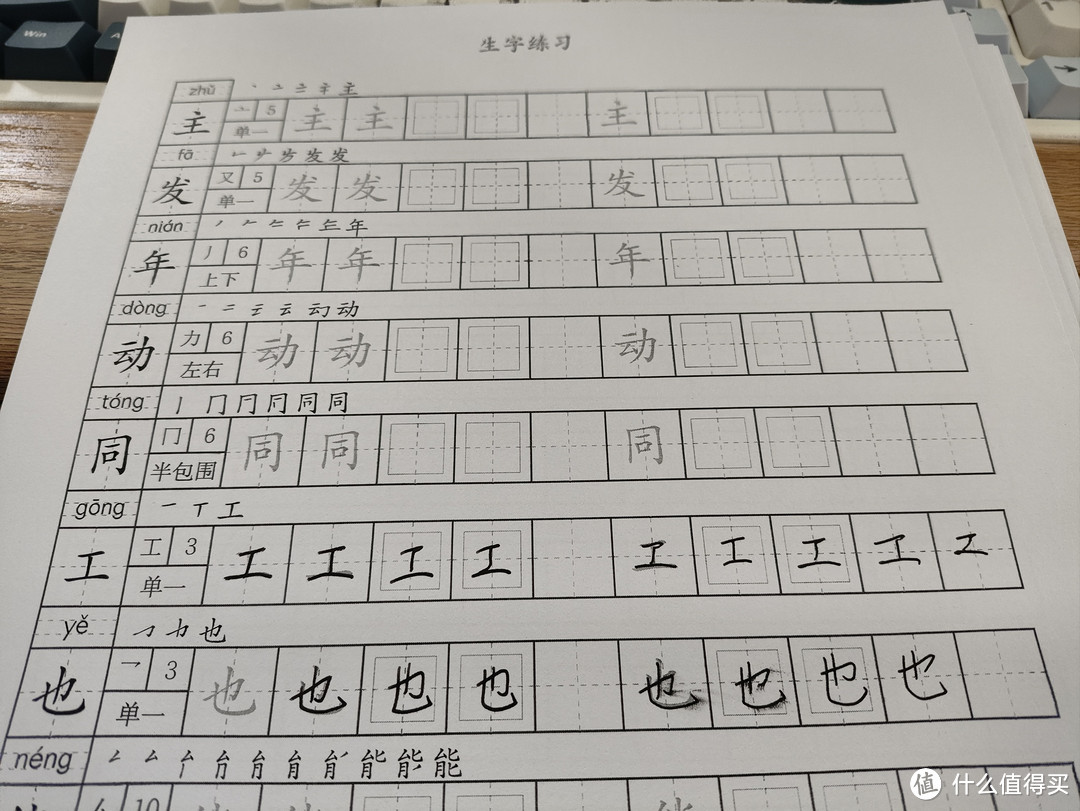 Win
生字练习
zhǔ 丶 亠 三 主 主
主 亠 5 主 主 主
单一
fā 发 发
发 又 5 发 发 发
单一
nián 丿 𠂉 年
年 丿 6 年 年 年
上下
dòng 一 二 云 动
动 力 6 动 动 动
左右
tóng 丨 冂 同 同
同 冂 6 同 同 同
半包围
gōng 一 丅 工
工 工 3 工 工 工 工 工 工 工 工 工
单一
yě 也
也 乛 3 也 也 也 也 也 也 也 也
单一
néng 能 能 能
10
值 什么值得买